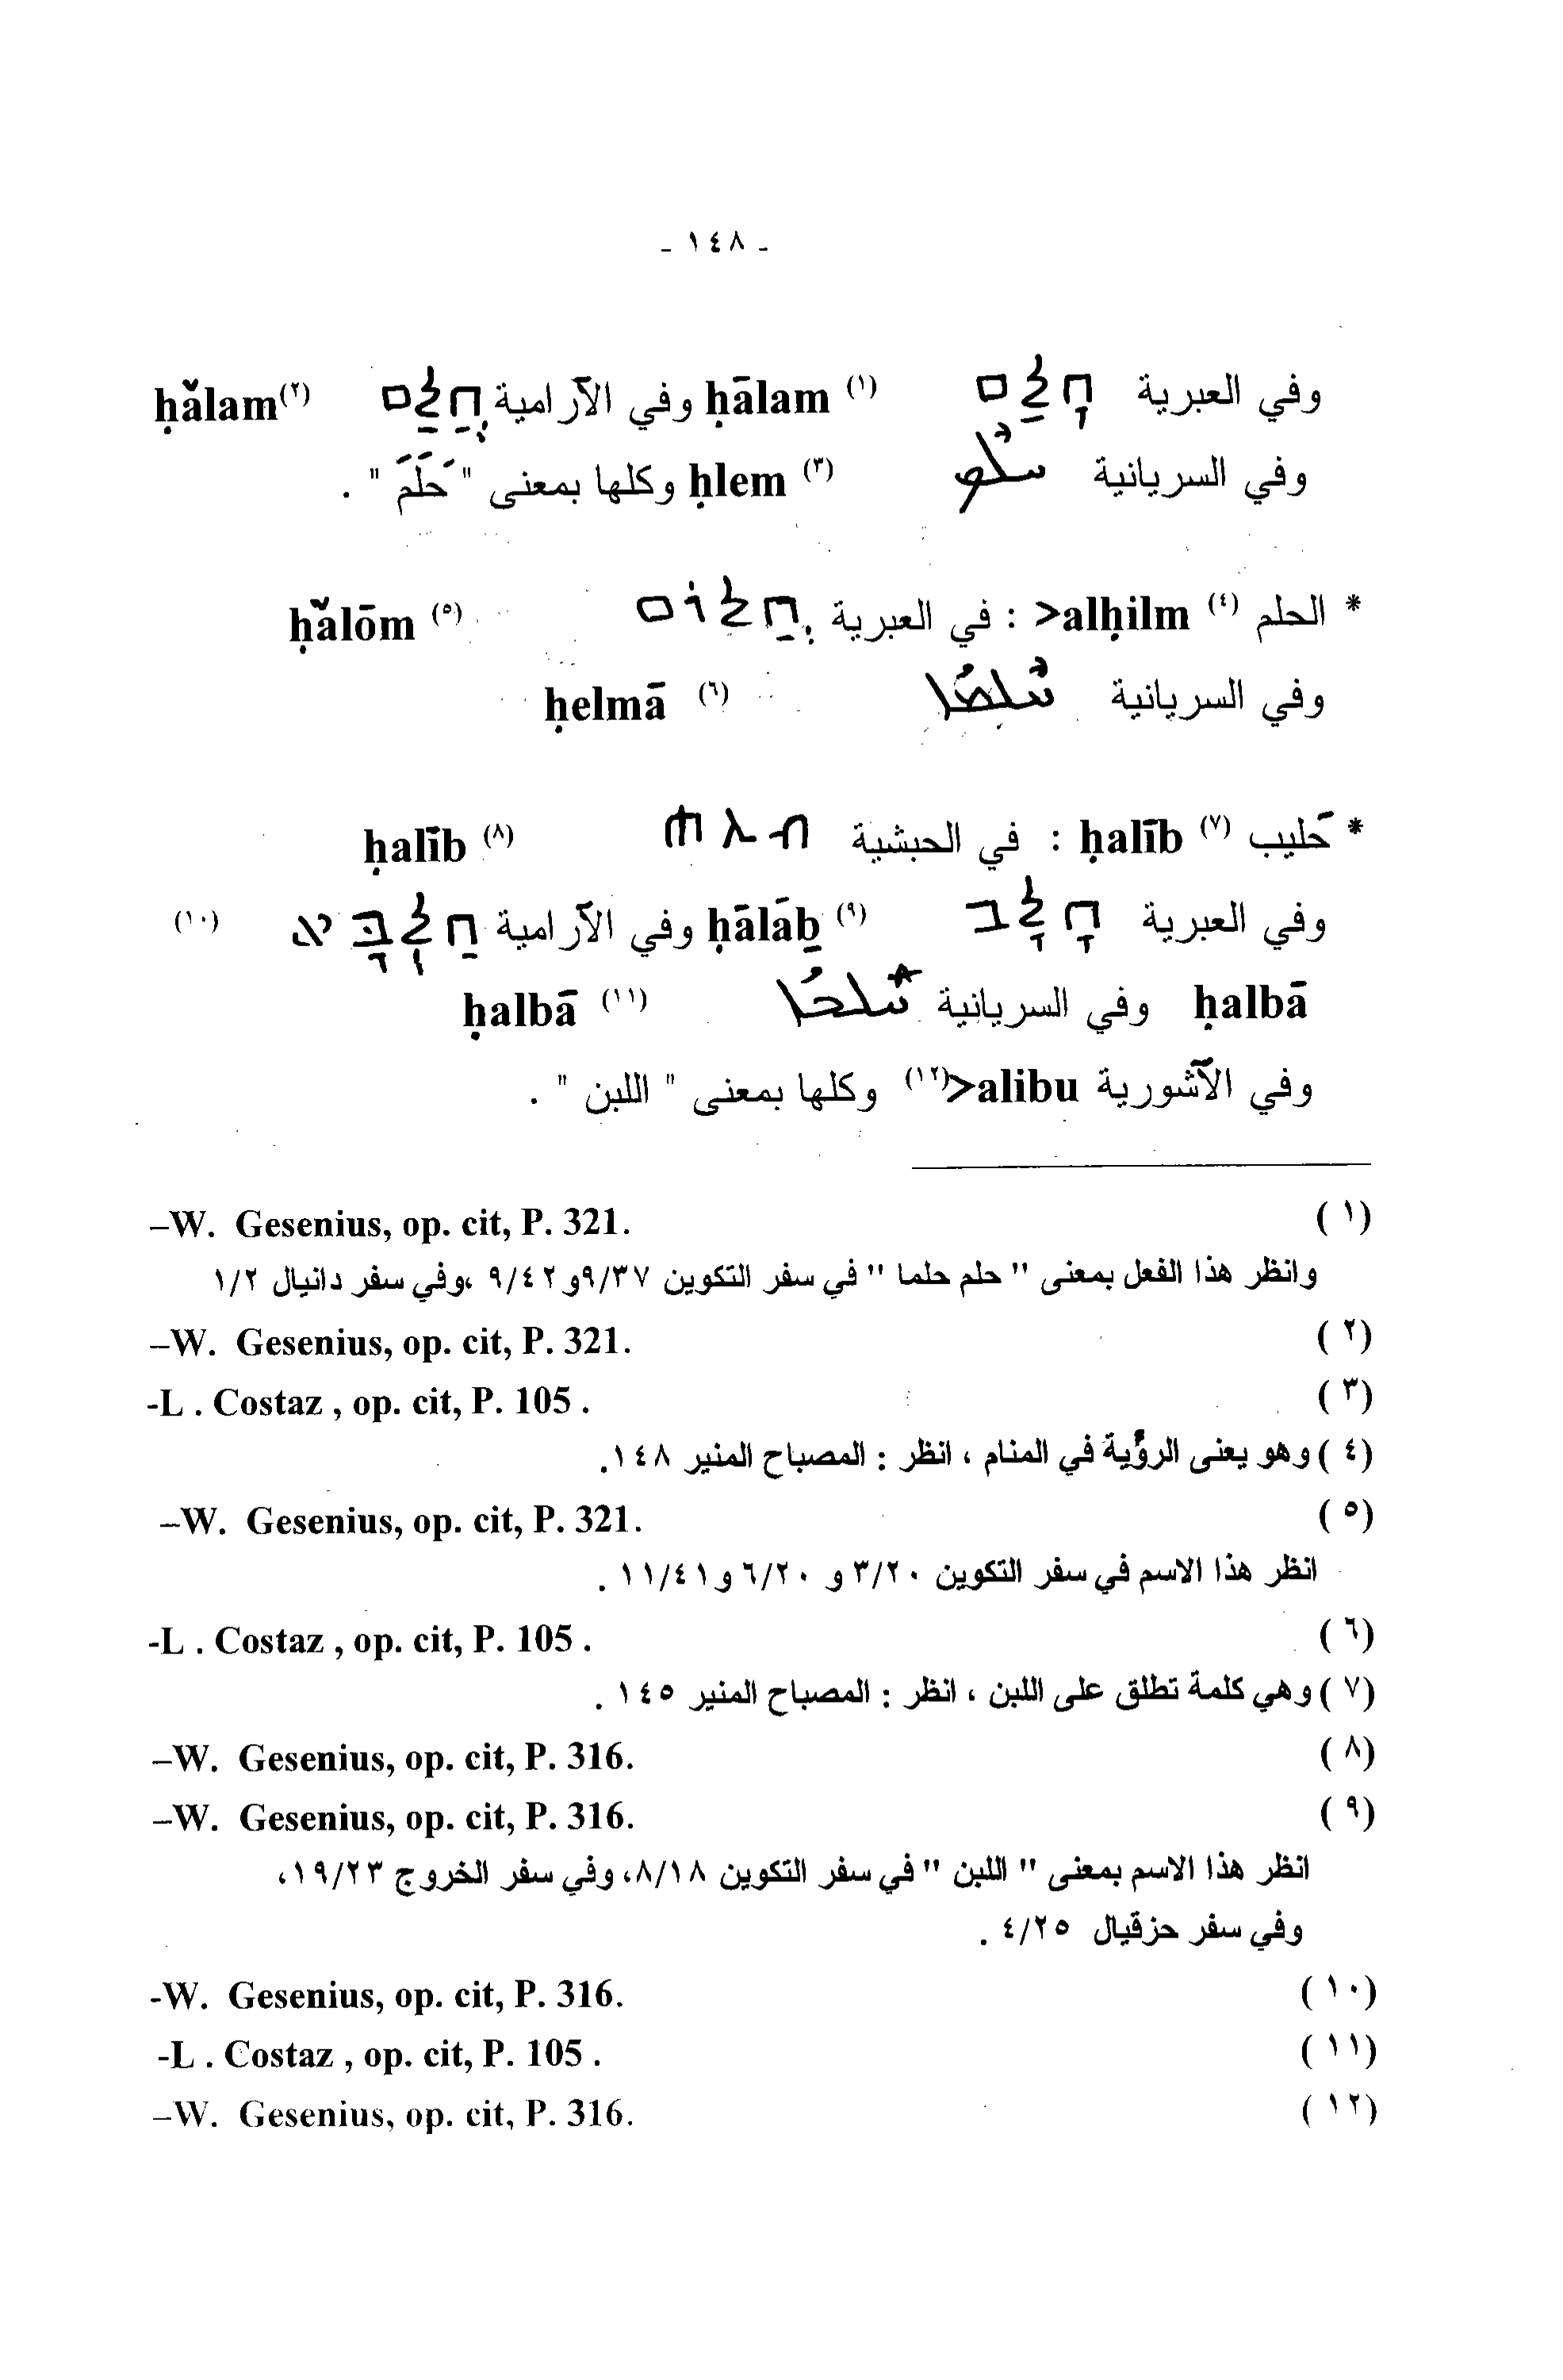 - ١٤٨ -
وفي العبرية חָלַם ḥālam (١) وفي الآرامية חֲלַם ḥălam(٢)
وفي السريانية ܚܠܡ ḥlem (٣) وكلها بمعنى " حَلَمَ " .
* الحلم (٤) >alḥilm : في العبرية חֲלוֹם ḥălōm (٥)
وفي السريانية ܚܠܡܐ ḥelmā (٦)
* حَليب (٧) ḥalīb : في الحبشية ሐሊብ ḥalīb (٨)
وفي العبرية חָלָב ḥālāḇ (٩) وفي الآرامية חַלְבָּא (١٠)
ḥalbā وفي السريانية ܚܠܒܐ ḥalbā (١١)
وفي الآشورية >alibu(١٢) وكلها بمعنى " اللبن " .
(١) –W. Gesenius, op. cit, P. 321.
وانظر هذا الفعل بمعنى " حلم حلما " في سفر التكوين ٩/٣٧و ٩/٤٢ ،وفي سفر دانيال ١/٢
(٢) –W. Gesenius, op. cit, P. 321.
(٣) -L . Costaz , op. cit, P. 105 .
(٤) وهو يعنى الرؤية في المنام ، انظر : المصباح المنير ١٤٨.
(٥) –W. Gesenius, op. cit, P. 321.
انظر هذا الاسم في سفر التكوين ٣/٢٠ و ٦/٢٠ و١١/٤١ .
(٦) -L . Costaz , op. cit, P. 105 .
(٧) وهي كلمة تطلق على اللبن ، انظر : المصباح المنير ١٤٥ .
(٨) –W. Gesenius, op. cit, P. 316.
(٩) –W. Gesenius, op. cit, P. 316.
انظر هذا الاسم بمعنى " اللبن " في سفر التكوين ٨/١٨، وفي سفر الخروج ١٩/٢٣،
وفي سفر حزقيال ٤/٢٥ .
(١٠) -W. Gesenius, op. cit, P. 316.
(١١) -L . Costaz , op. cit, P. 105 .
(١٢) –W. Gesenius, op. cit, P. 316.